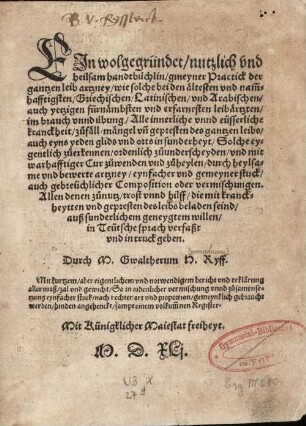 B. V. Ryff
EIn wolgegründet/nutzlich vnd
heilsam handtbüchlin/gmeyner Practick der
gantzen leib artzney/wie solche bei den ältesten vnd nam̃-
hafftigsten/Griechischen/Latinischen/vnd Arabischen/
auch yetzigen fürnämbsten vnd erfarnesten leibärtzten/
im brauch vnnd übung/Alle innerliche vnnd eüsserliche
kranckheit/zůfäll/mängel vñ gepresten des gantzen leibs/
auch eyns yeden glids vnd orts in sunderheyt. Solche ey-
gentlich zůerkennen/ordenlich zůunderscheyden/vnd mit
warhafftiger Cur zůwenden vnd zůheylen/durch heylsa-
me vnd bewerte artzney/eynfacher vnd gemeyner stuck/
auch gebreüchlicher Composition oder vermischungen.
Allen denen zůnutz/trost vnnd hilff/die mit kranck-
heytten vnd gepresten des leibs beladen seind/
auß sunderlichem geneygtem willen/
in Teütsche sprach verfaßt
vnd in truck geben.
Durch M. Gwaltherum H. Ryff.
Mit kurtzem/aber eigentlichem vnd notwendigem bericht vnd erklärung
aller maß/zal vnd gewicht/So in ordenlicher vermischung vnnd zůsamen se-
tzung eynfacher stuck/nach rechter art vnd proportion/gemeynlich gebraucht
werden/hinden angehenckt/sampt einem volkum̃nen Register.
Mit Künigklicher Maiestat freiheyt.
M. D. XLj.
Gymnasial-Bibliothek
UB X
27